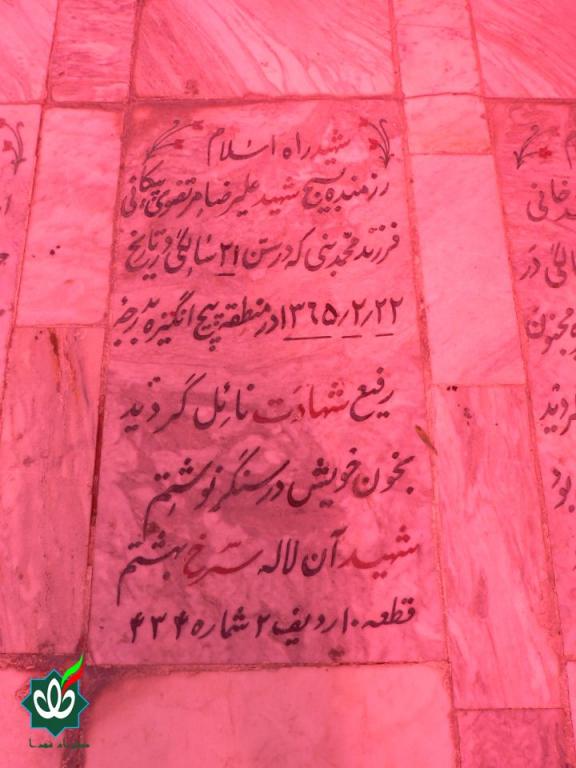 شهید راه اسلام
رزمنده بسیج شهید علیرضا میرتقوی پیکانی
فرزند محمد بنی که در سن ۲۱ سالگی در تاریخ
۱۳۶۵/۲/۲۲ در منطقه پیچ انگیزه بدرجه
رفیع شهادت نائل گردید
بخون خویش در سنگر نوشتم
شهید آن لاله سرخ بهشتم
قطعه ۱۰ ردیف ۲ شماره ۴۳۴
خانی
سالگی در
مجنون